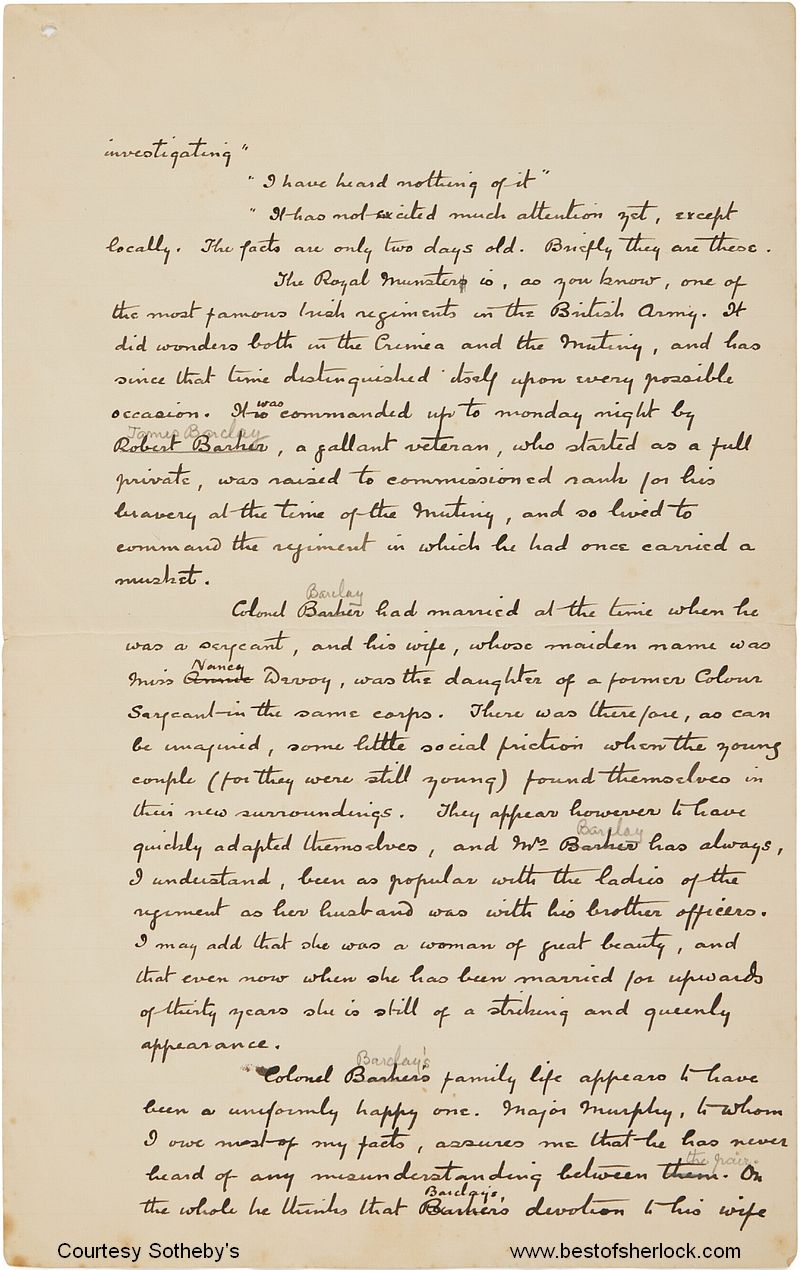 investigating"
" I have heard nothing of it"
" It has not excited much attention yet, except
locally. The facts are only two days old. Briefly they are these.
The Royal Munsters is, as you know, one of
the most famous Irish regiments in the British Army. It
did wonders both in the Crimea and the Mutiny, and has
since that time distinguished itself upon every possible
was
occasion. It is commanded up to monday night by
James Barclay
Robert Barker, a gallant veteran, who started as a full
private, was raised to commissioned rank for his
bravery at the time of the Mutiny, and so lived to
command the regiment in which he had once carried a
musket.
Barclay
Colonel Barker had married at the time when he
was a sergeant, and his wife, whose maiden name was
Nancy
Miss Annie Devoy, was the daughter of a former Colour
Sergeant in the same corps. There was therefore, as can
be imagined, some little social friction when the young
couple (for they were still young) found themselves in
their new surroundings. They appear however to have
Barclay
quickly adapted themselves, and Mrs Barker has always,
I understand, been as popular with the ladies of the
regiment as her husband was with his brother officers.
I may add that she was a woman of great beauty, and
that even now when she has been married for upwards
of thirty years she is still of a striking and queenly
appearance.
Barclay's
Colonel Barker's family life appears to have
been a uniformly happy one. Major Murphy, to whom
I owe most of my facts, assures me that he has never
the pair.
heard of any misunderstanding between them. On
Barclay's
the whole he thinks that Barker's devotion to his wife
Courtesy Sotheby's
www.bestofsherlock.com